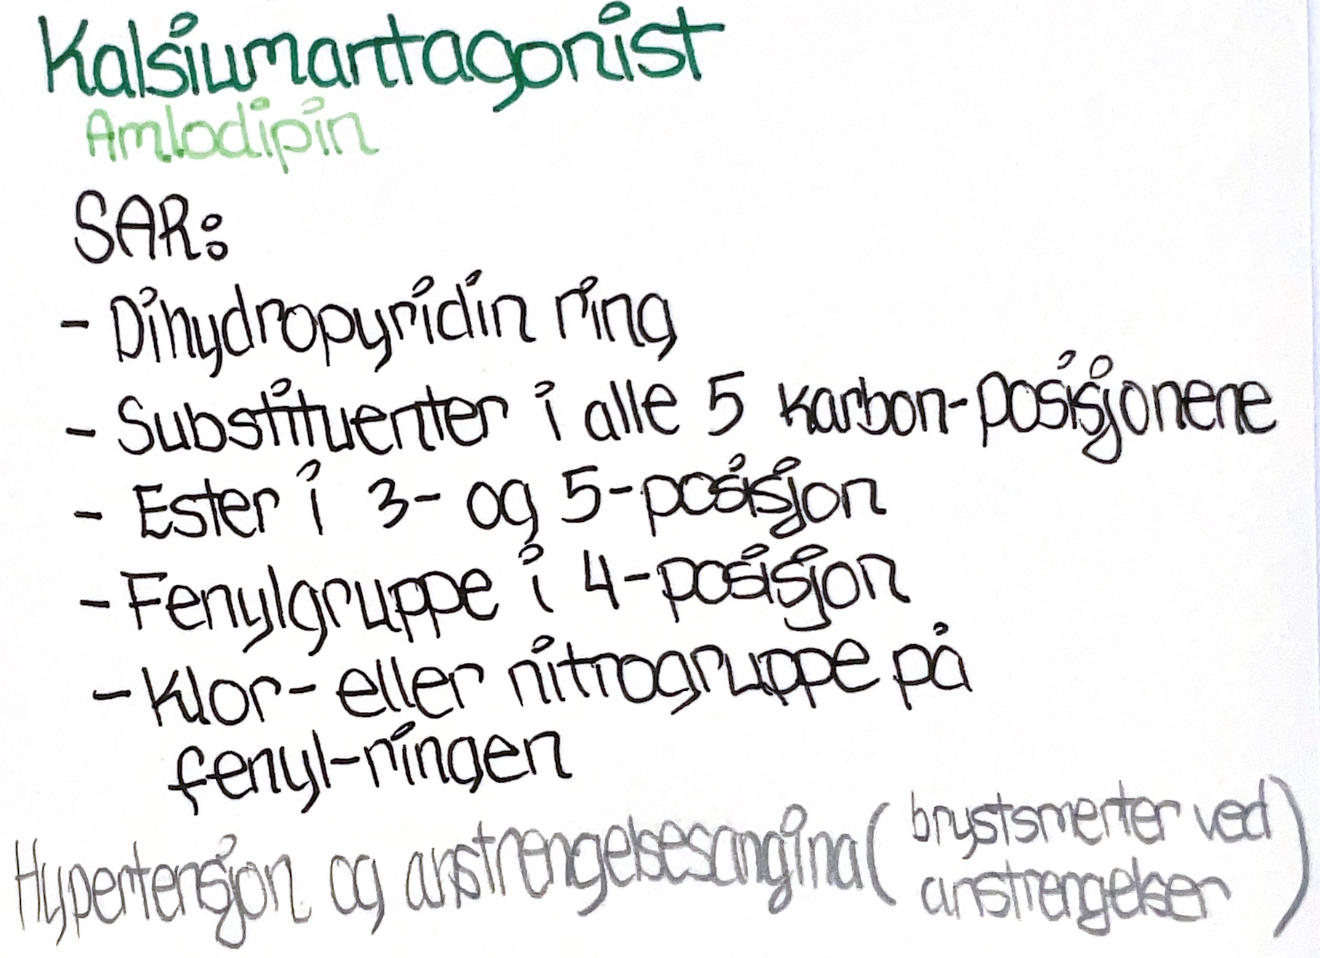 Kalsiumantagonist
Amlodipin
SAR:
- Dihydropyridin ring
- Substituenter i alle 5 karbon-posisjonene
- Ester i 3- og 5-posisjon
- Fenylgruppe i 4-posisjon
- Klor- eller nitrogruppe på
fenyl-ringen
Hypertensjon og anstrengelsesangina (brystsmerter ved
anstrengelser)